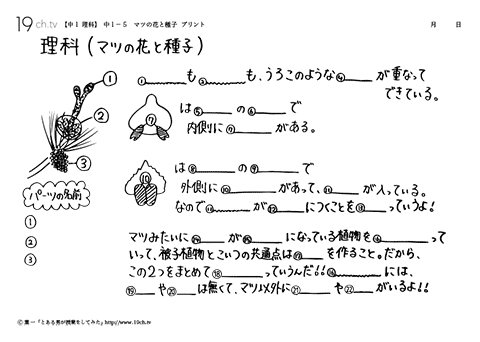 19ch.tv 【中1 理科】 中1-5 マツの花と種子 プリント 月 日
理科(マツの花と種子)
①____も②____も、うろこのような④____が重なって
できている。
①
②
③
は⑤____の⑥____で
内側に⑦____がある。
⑦
は⑧____の⑨____で
外側に⑩____があって、⑪____が入っている。
なので⑪____が⑫____につくことを⑬____っていうよ!
⑩
パーツの名前
①
②
③
マツみたいに⑭____が⑮____になっている植物を⑯____って
いって、被子植物とこいつの共通点は⑰____を作ること。だから、
この2つをまとめて⑱____っていうんだ!! ⑯____には、
⑲____や⑳____は無くて、マツ以外に㉑____や㉒____がいるよ!!
© 葉一「とある男が授業をしてみた」http://www.19ch.tv